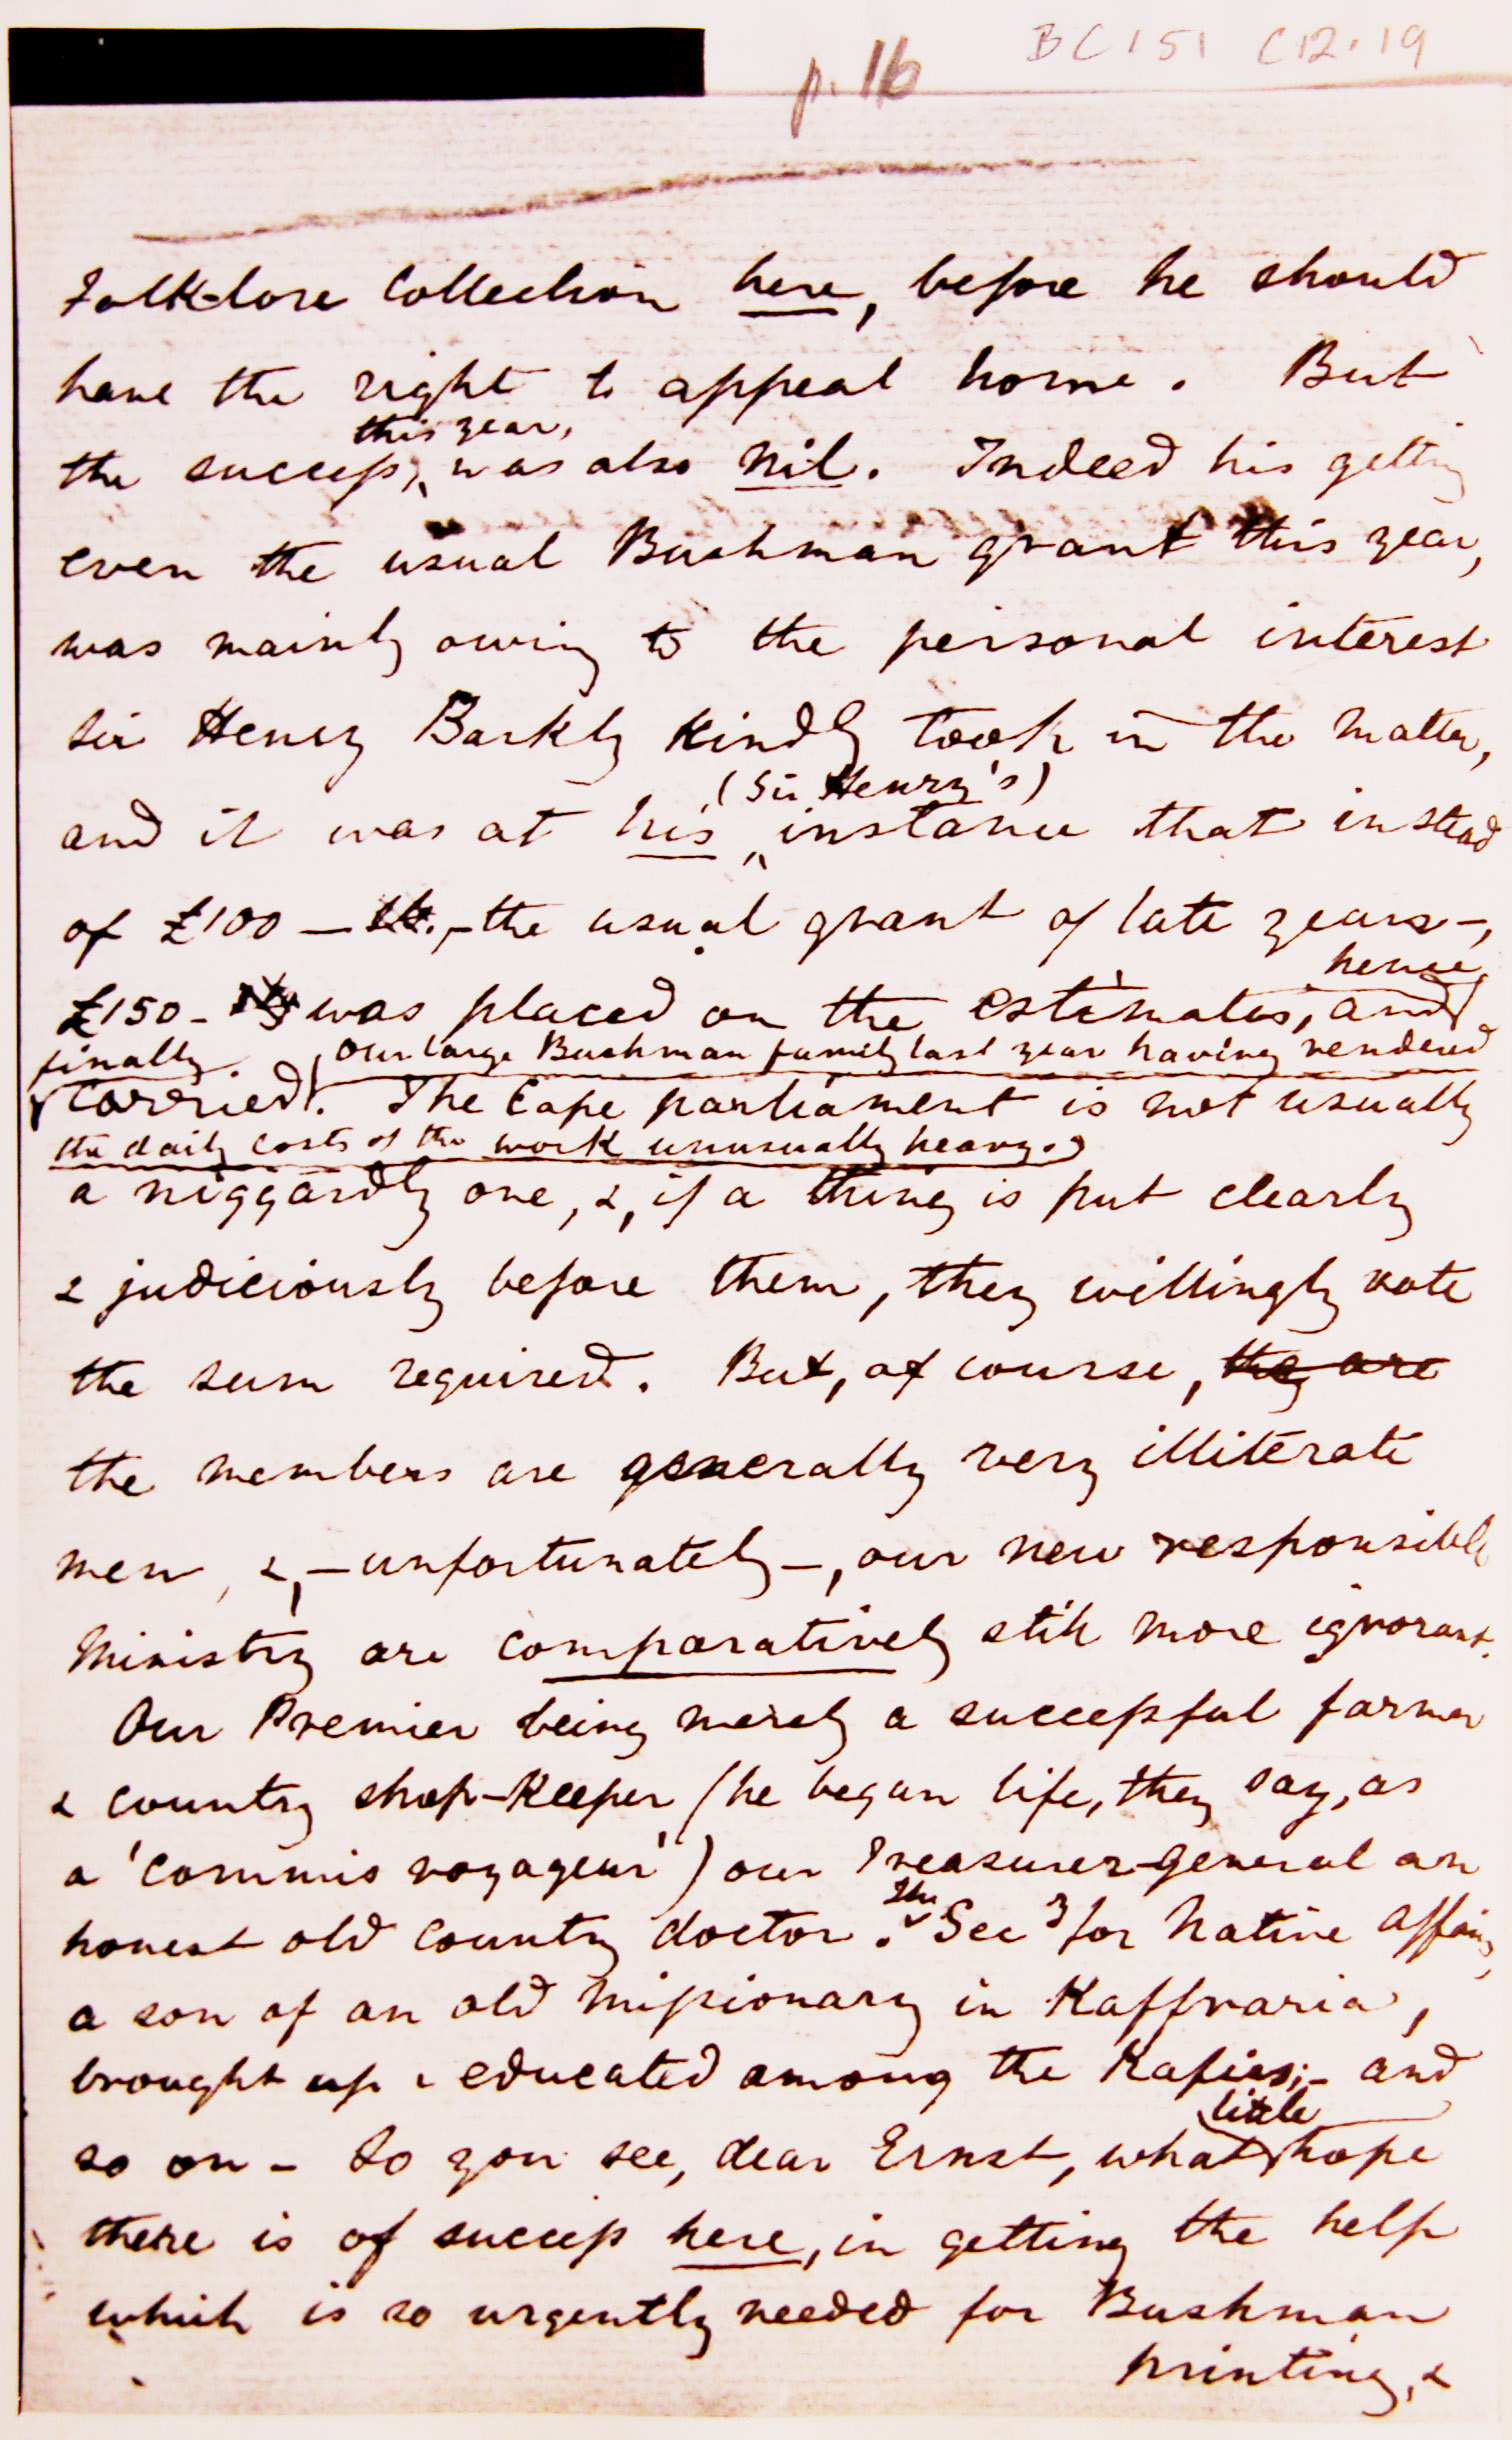 BC151 C12.19
p. 16
Folk-lore Collection here, before he should
have the right to appeal home. But
this year,
the success, was also nil. Indeed his getting
even the usual Bushman grant this year,
was mainly owing to the personal interest
Sir Henry Barkly kindly took in the matter,
(Sir Henry's)
and it was at his instance that instead
of £100 — the usual grant of late years –,
hence
£150 – was placed on the estimates, and
finally. (Our large Bushman family last year having rendered
carried. The Cape parliament is not usually
the daily costs of the work unusually heavy.)
a niggardly one, &, if a thing is put clearly
& judiciously before them, they willingly vote
the sum required. But, of course, they are
the members are generally very illiterate
men, &, – unfortunately –, our new responsible
Ministry are comparatively still more ignorant.
Our Premier being merely a successful farmer
& country shop-keeper (he began life, they say, as
a 'commis voyageur') our Treasurer-general an
The
honest old country doctor. Secy for Native Affairs,
a son of an old missionary in Kaffraria,
brought up & educated among the Kafirs; – and
little
so on – So you see, dear Ernst, what hope
there is of success here, in getting the help
which is so urgently needed for Bushman
printing, &